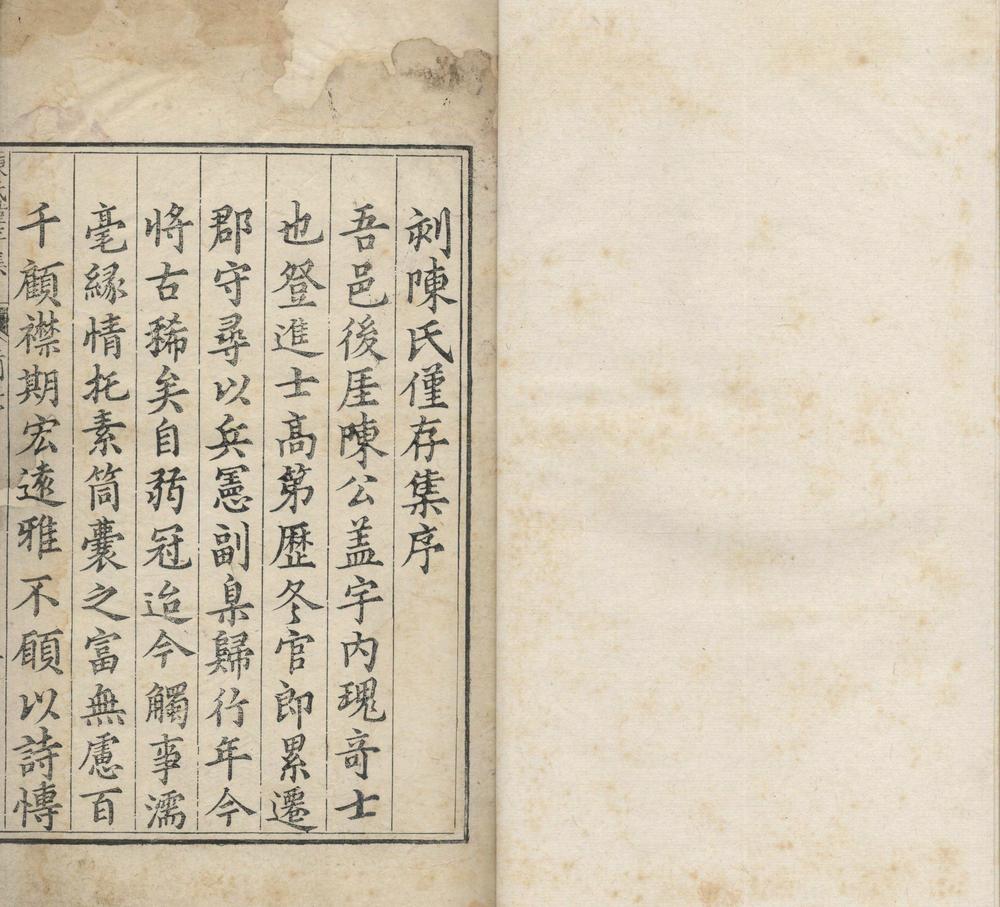 刻陳氏僅存集序
吾邑後厓陳公盖宇内瑰奇士
也登進士高第歷冬官郎累遷
郡守尋以兵憲副臬歸行年今
將古稀矣自弱冠迨今觸事濡
毫緣情托素筒囊之富無慮百
千顧襟期宏遠雅不願以詩傳